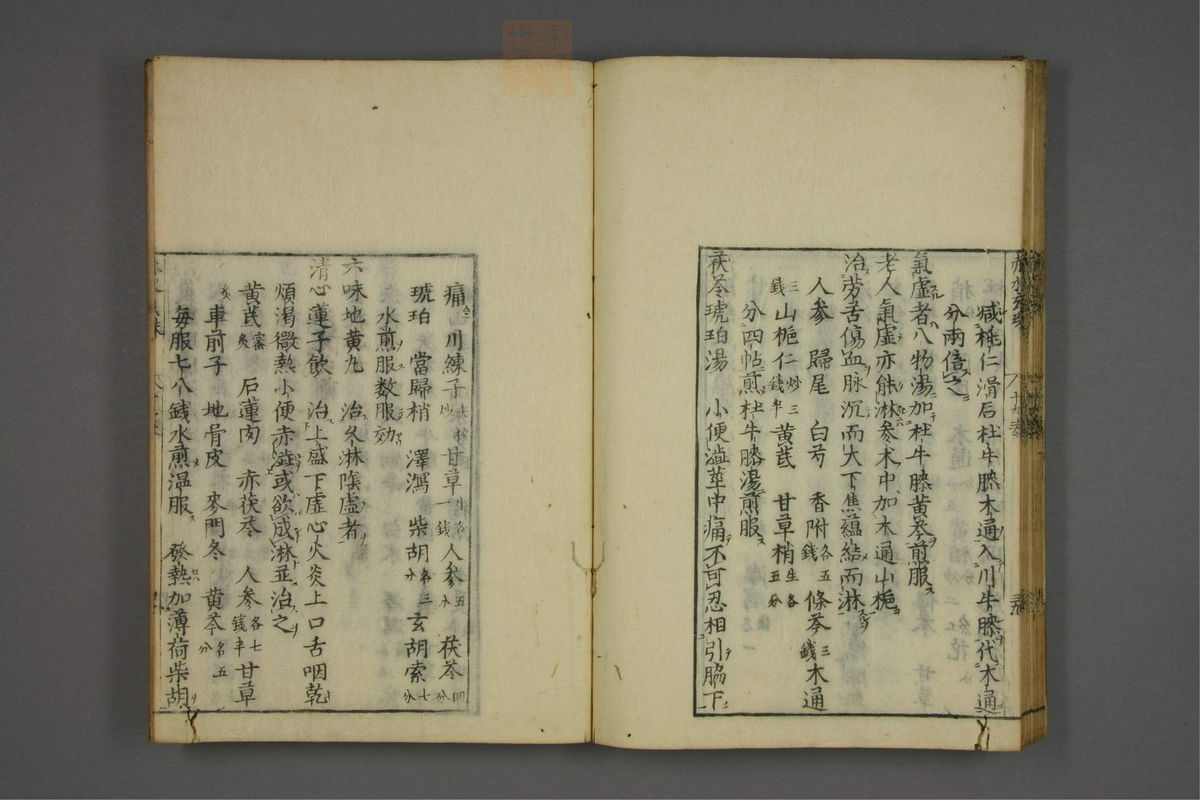 減桃仁滑石杜牛膝木通入川牛膝代木通
分兩倍之
氣虛者八物湯加杜牛膝黃芩煎服
老人氣虛亦能淋參朮中加木通山梔
治労苦傷血脉沉而大下焦蘊結而淋
人参 歸尾 白芍 香附各五錢 條芩三錢 木通
三錢 山梔仁炒三錢半 黃芪 甘草梢生各五分
分四帖煎杜牛膝湯煎服
茯苓琥珀湯 小便澁莖中痛不可忍相引脇下
痛 川練子去核炒 甘草生各一錢 人參五分 茯苓四分
琥珀 當歸梢 澤瀉 柴胡各三分 玄胡索七分
水煎服数服効
六味地黃丸 治久淋陰虛者
清心蓮子飲 治上盛下虛心火炎上口舌咽乾
煩渴微熱小便赤澁或欲成淋並治之
黃芪蜜炙 石蓮肉 赤茯苓 人參各七錢半 甘草
炙 車前子 地骨皮 麥門冬 黃芩各五分
每服七八錢水煎温服 發熱加薄荷柴胡